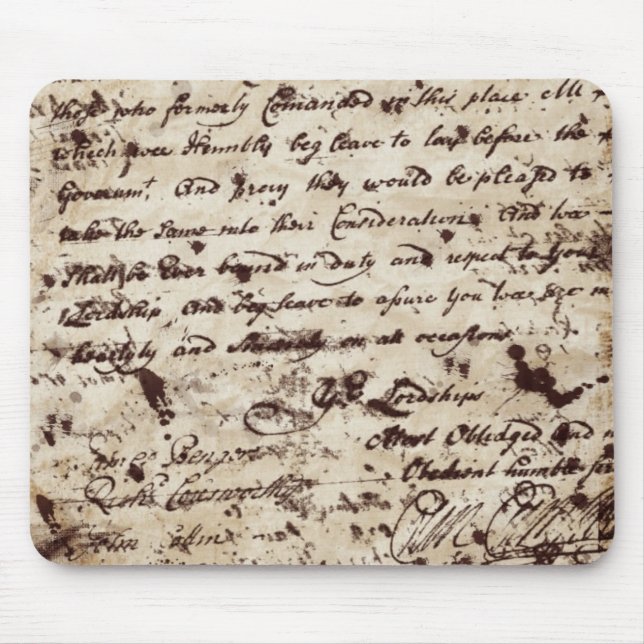 those who formerly Comanded in this place All
which wee Humbly beg leave to lay before the
Governmt. And pray they would be pleased to
take the Same into their Consideration And wee
Shall be Ever bound in duty and respect to Your
Lordship And beg leave to asure You wee are
heartyly and Sincerely on all occasions
Lordships
Most Obledged and
Obedient humble
John